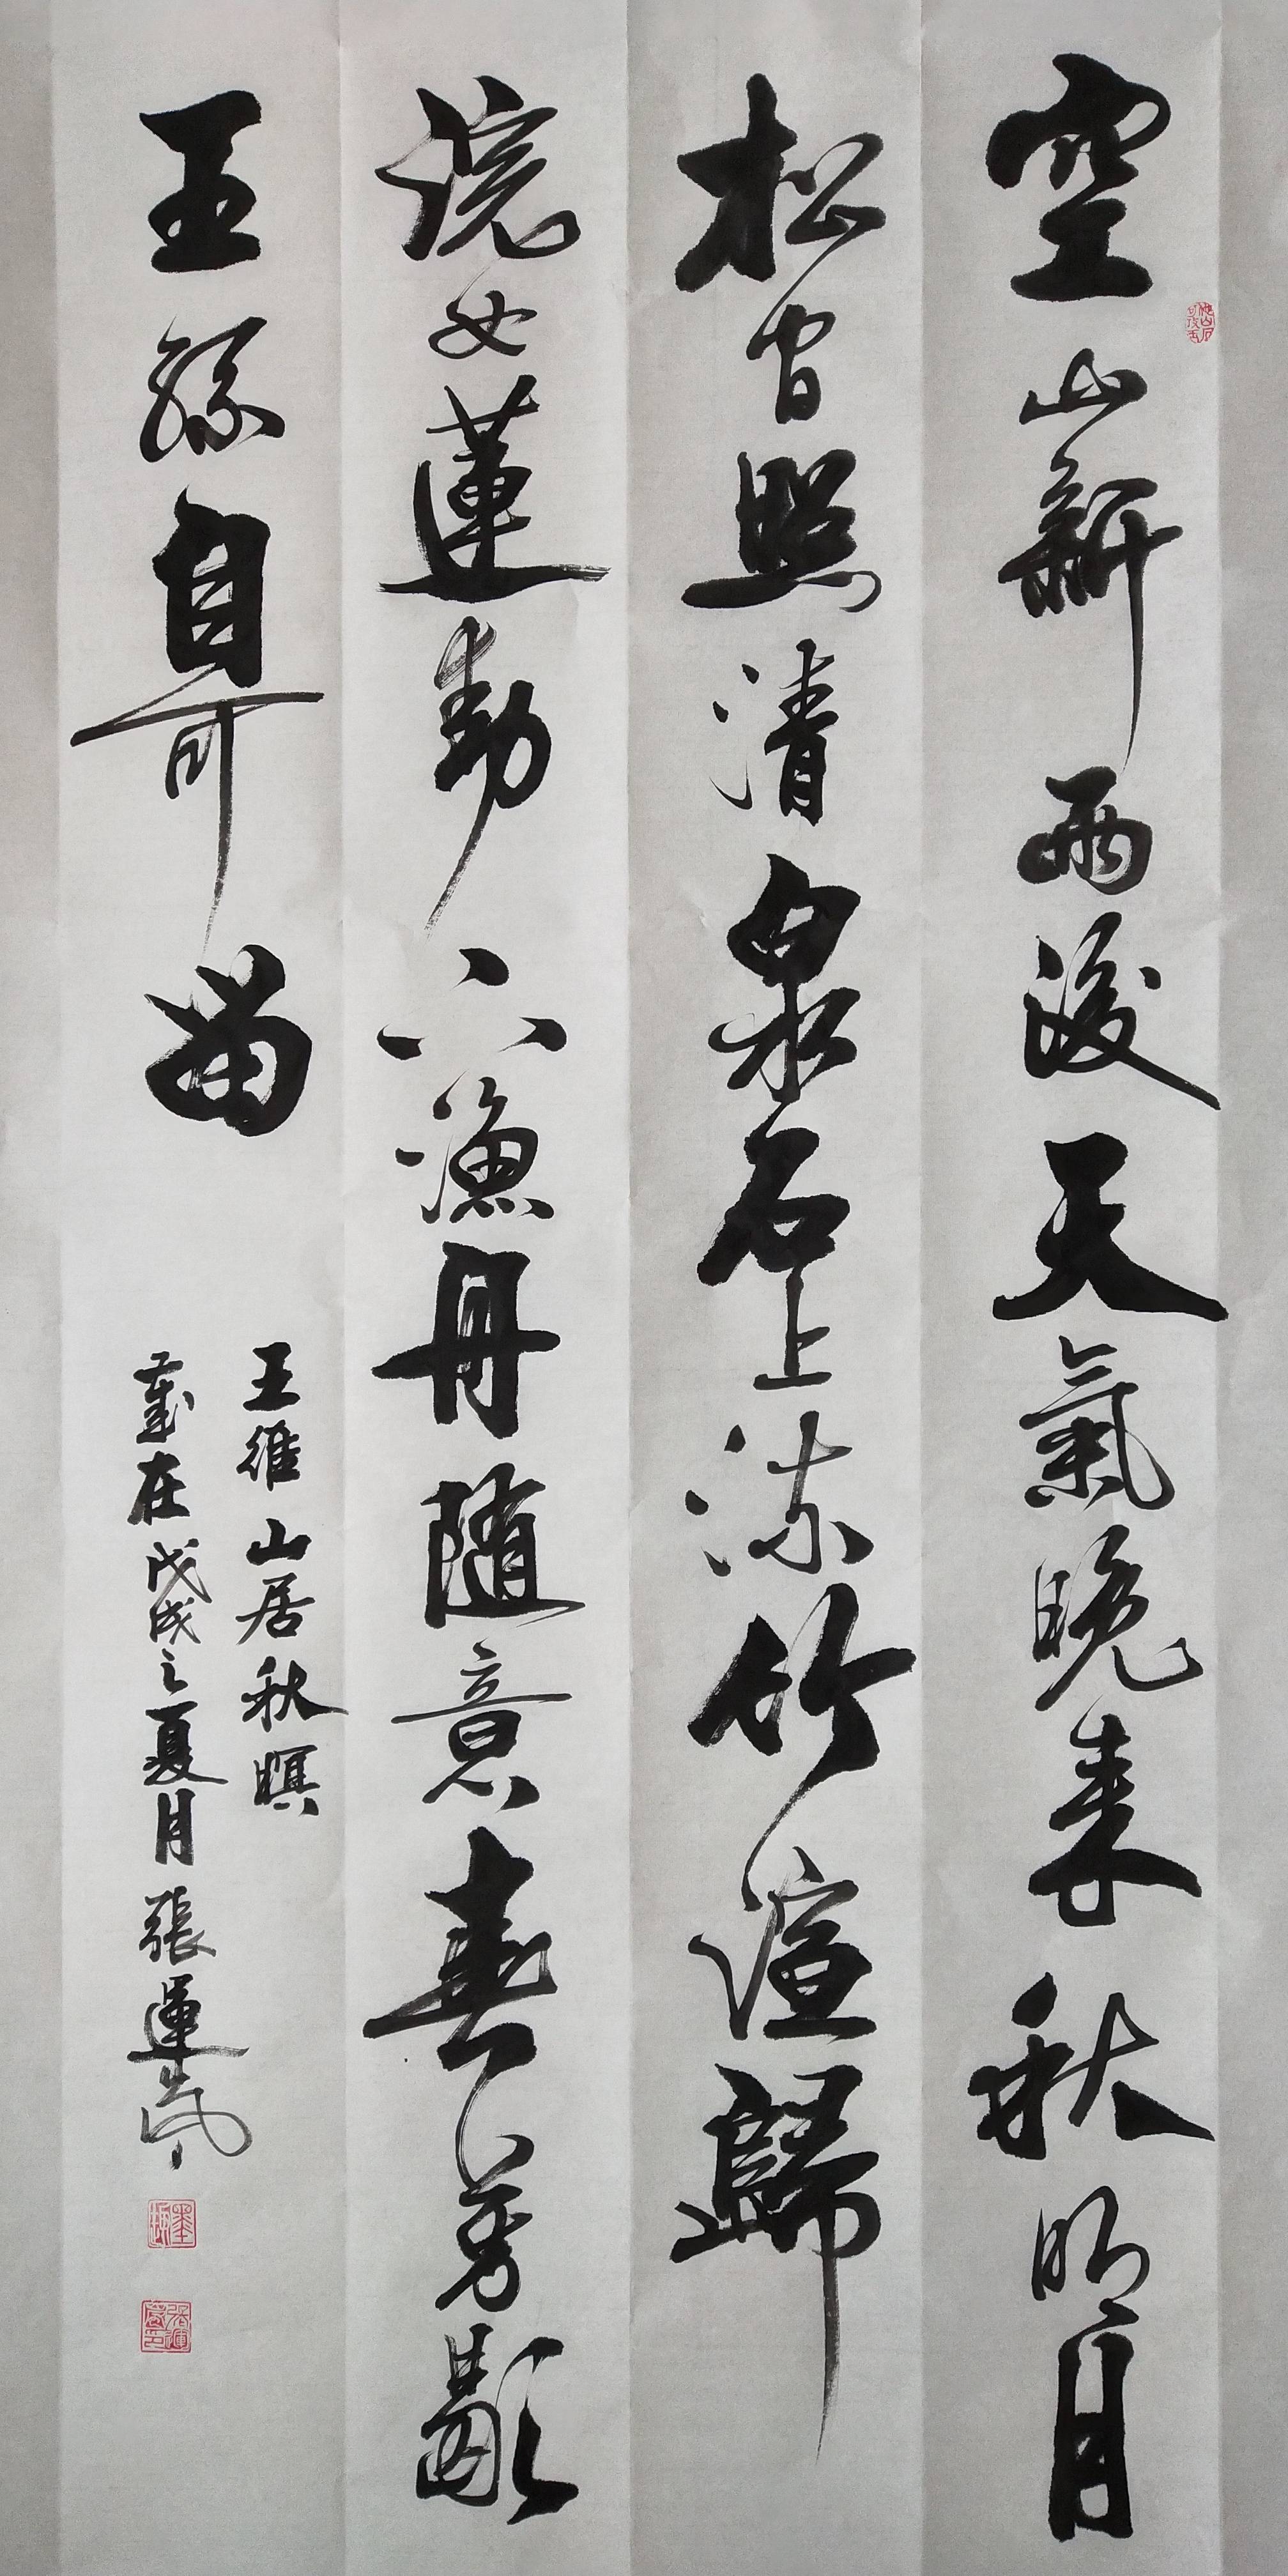 空山新雨後天氣晚來秋明月
松間照清泉石上流竹喧歸
浣女蓮動下漁舟随意春芳歇
王孫自可留
王維山居秋暝
歲在戊戌之夏月張運